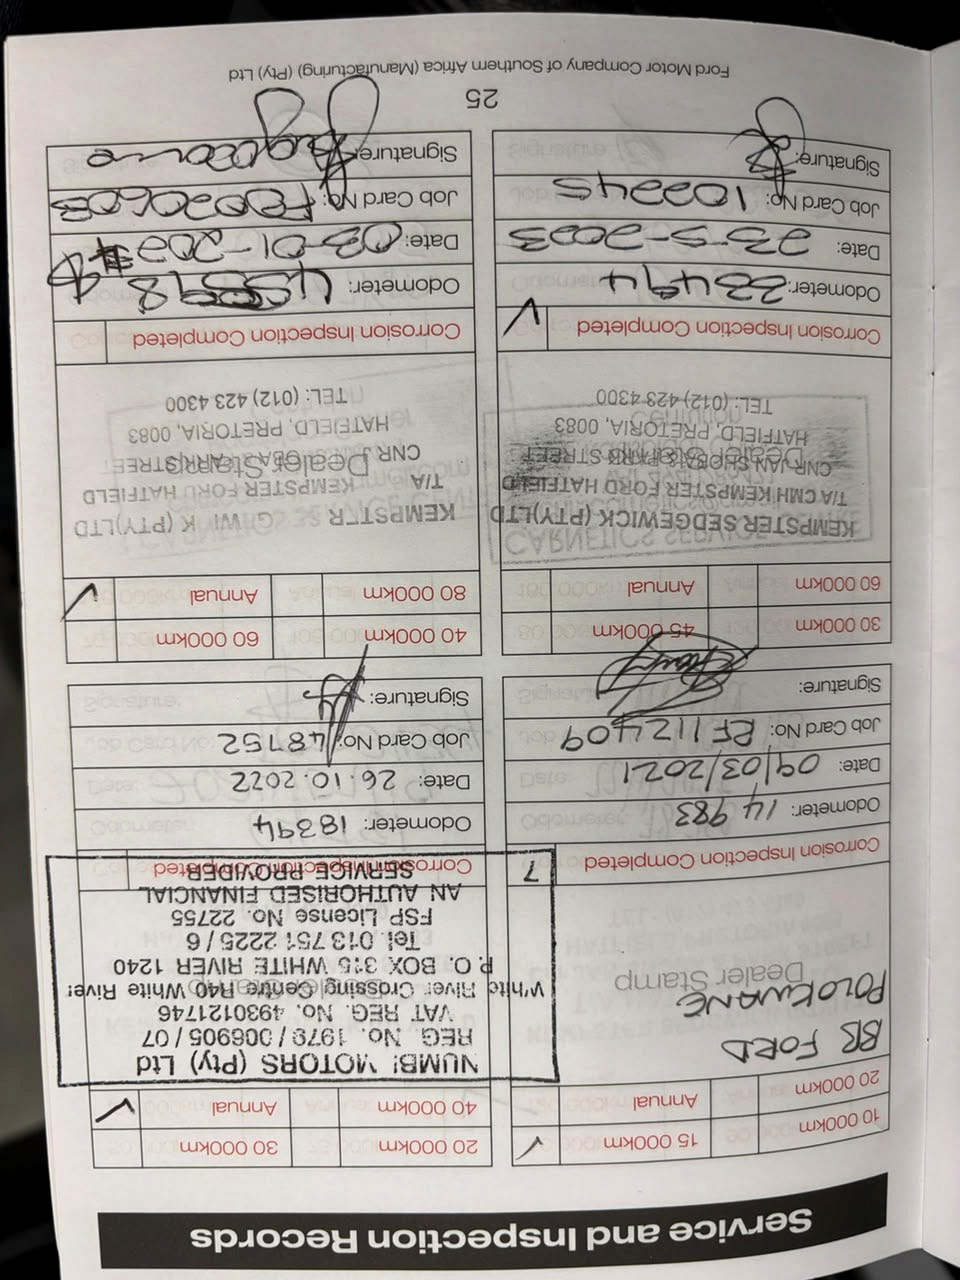 Service and Inspection Records
10 000km
15 000km ✓
20 000km
Annual
BB FORD
POLOKWANE
Dealer Stamp
Corrosion Inspection Completed
Odometer: 14 983
Date: 09/03/2021
Job Card No: BF112409
Signature:
20 000km
30 000km
40 000km
Annual ✓
NUMBI MOTORS (Pty) Ltd
REG. No. 1979 / 006905 / 07
VAT REG. No. 4930121746
White River Crossing Centre R40 White River
P.O. BOX 315 WHITE RIVER 1240
Tel. 013 751 2225 / 6
FSP License No. 22755
AN AUTHORISED FINANCIAL
SERVICE PROVIDER
Corrosion Inspection Completed
Odometer: 18394
Date: 26.10.2022
Job Card No: 48752
Signature:
30 000km
45 000km
60 000km
Annual
KEMPSTER SEDGEWICK (PTY)LTD
T/A CMH KEMPSTER FORD HATFIELD
CNR JAN SHOBA & PARK STREET
Dealer Stamp
HATFIELD, PRETORIA, 0083
TEL: (012) 423 4300
Corrosion Inspection Completed ✓
Odometer: 33494
Date: 23-5-2023
Job Card No: 102245
Signature:
40 000km
60 000km
80 000km
Annual ✓
KEMPSTER
(PTY)LTD
T/A KEMPSTER FORD HATFIELD
CNR
STREET
Dealer Stamp
HATFIELD, PRETORIA, 0083
TEL: (012) 423 4300
Corrosion Inspection Completed
Odometer:
Date: 03-01-202
Job Card No:
Signature:
25
Ford Motor Company of Southern Africa (Manufacturing) (Pty) Ltd